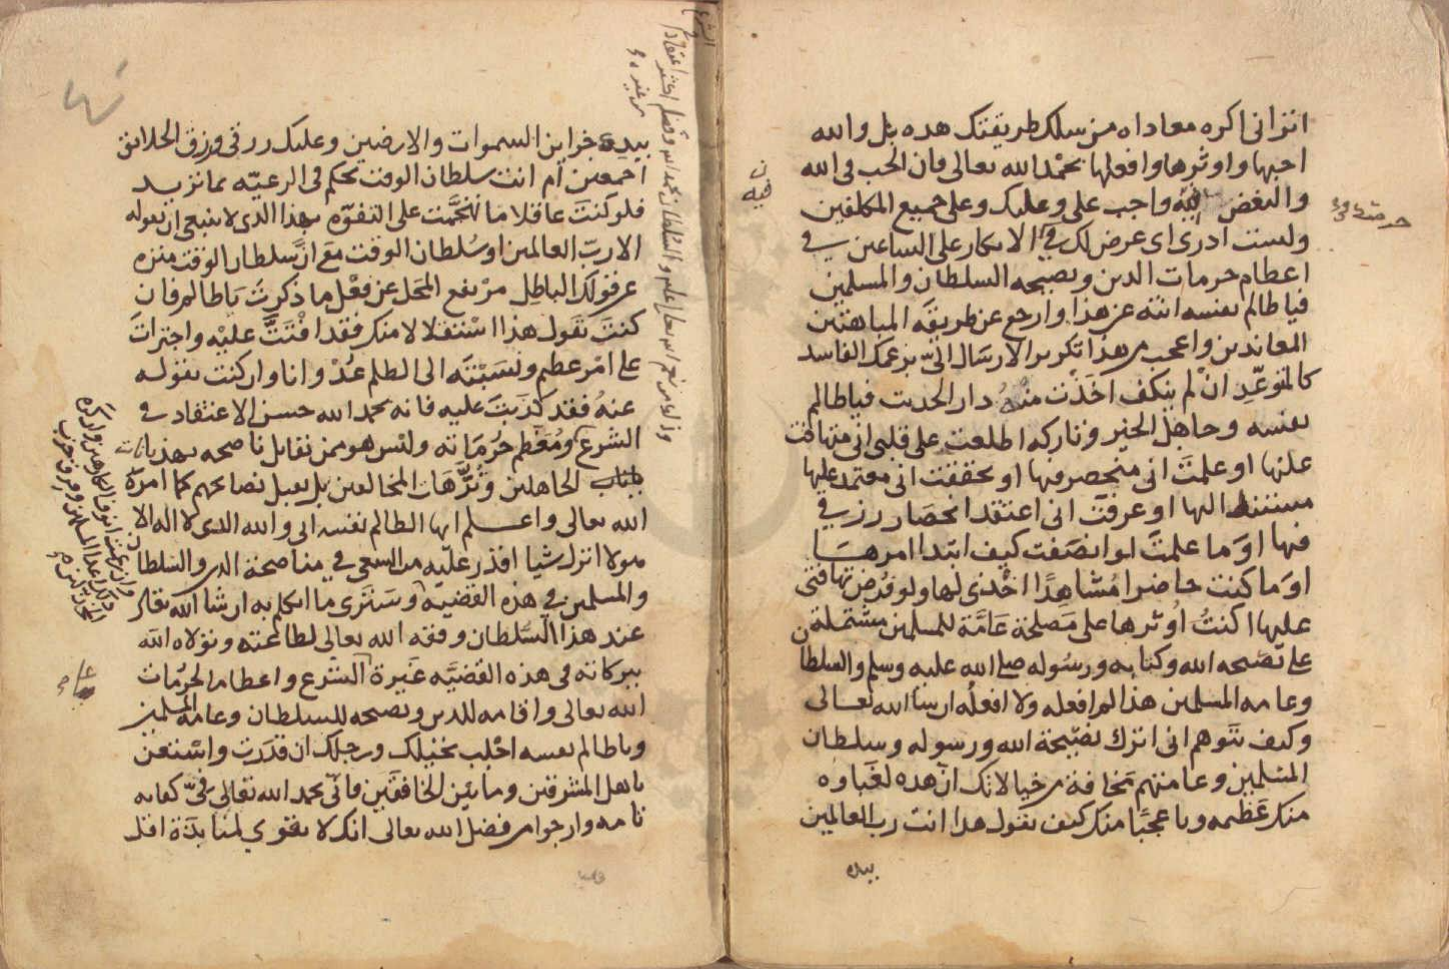 اتراني اكره معاداه من سلك طريقتك هذه بل والله
احبها واوثرها وافعلها بحمد الله تعالى فان الحب في الله
والبغض فيه واجب علي وعليك وعلى جميع المكلفين
ولست ادري اي غرض لك في الانكار على الساعين في
اعظام حرمات الدين ونصيحه السلطان والمسلمين
فيا ظالم نفسه انته عن هذا وارجع عن طريقه المباهتين
المعاندين واعجب من هذا تكرير الارسال الي بزعمك الفاسد
كالمتوعد ان لم ينكف اخذت منه دار الحديث فيا ظالم
نفسه وجاهل الخير وتاركه اطلعت على قلبي اني متهالك
عليها او علمت اني منحصر فيها او تحققت اني معتمد عليها
مستند اليها او عرفت اني اعتقد انحصار رزقي في
فيها او ما علمت لو انصفت كيف ابتدا امرها
او ما كنت حاضرا مشاهدا اخذي لها ولو فرض تهافتي
عليها اكنت اوثرها على مصلحة عامة للمسلمين مشتملة
على نصيحه الله وكتابه ورسوله صلى الله عليه وسلم والسلطان
وعامه المسلمين هذا لم افعله ولا افعله ان شا الله تعالى
وكيف تتوهم اني اترك نصيحة الله ورسوله وسلطان
المسلمين وعامتهم مخافة من خيالاتك ان هذه لغباوه
منك عظيمه ويا عجبا منك كيف تقول هذا انت رب العالمين
بيده
فيه
بيده خزاين السموات والارضين وعليك رزقي ورزق الخلائق
اجمعين ام انت سلطان الوقت تحكم في الرعيه بما تريد
فلو كنت عاقلا ما تهجمت على التفوه بهذا الذي لا ينبغي ان يقوله
الا رب العالمين او سلطان الوقت مع ان سلطان الوقت منزه
عن قولك الباطل مرتفع المحل عن فعل ما ذكرت يا ظالم فان
كنت تقول هذا استقلالا منك فقد افتت عليه واجترات
على امر عظيم ونسبته الى الظلم عدوانا وان كنت تقوله
عنه فقد كذبت عليه فانه بحمد الله حسن الاعتقاد في
الشرع ومعظم حرماته وليس هو ممن يقابل ناصحه بهذيانات
الجاهلين وترهات المخالفين بل يقبل نصائحهم كما امره
الله تعالى واعلم ايها الظالم نفسه اني والله الذي لا اله الا
هو لا اترك شيا اقدر عليه من السعي في مناصحة الدين والسلطان
والمسلمين في هذه القضيه وسترى ما اتكلم به ان شا الله تعالى
عند هذا السلطان وفقه الله تعالى لطاعته وتولاه الله
ببركاته في هذه القضيه غيرة للشرع واعظاما لحرمات
الله تعالى واقامه للدين ونصيحه للسلطان وعامه المسلمين
ويا ظالم نفسه اجلب بخيلك ورجلك ان قدرت واستعن
باهل المشرقين وما بين الخافقين فاني بحمد الله تعالى في كفايه
تامه وارجوا من فضل الله تعالى انك لا تقوى لمنابذة اقل